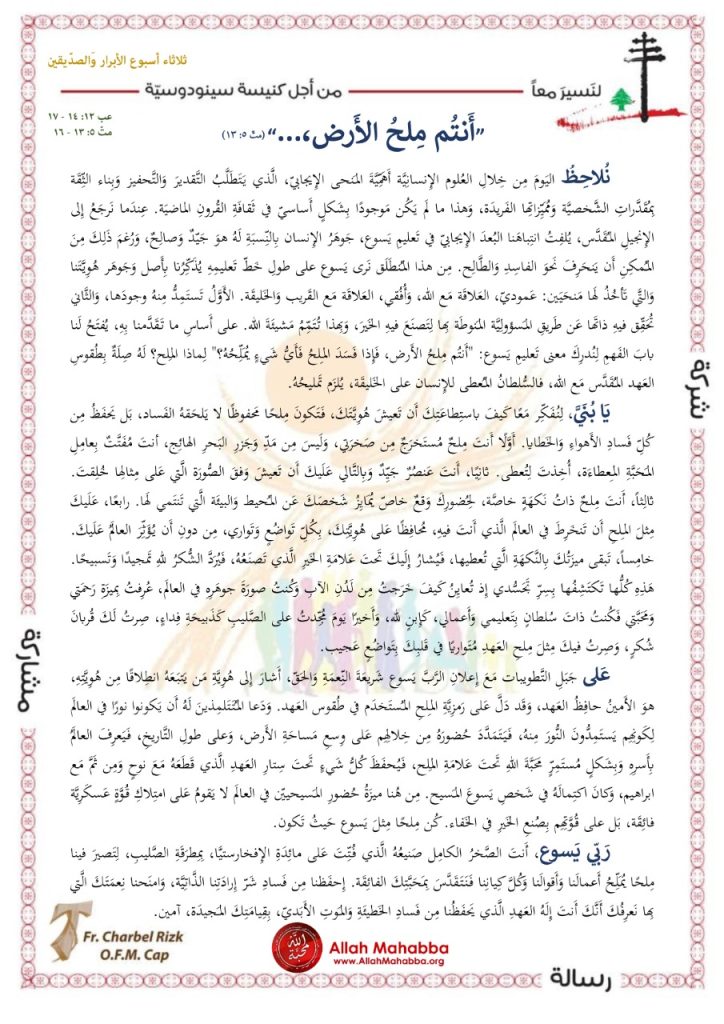 ثلاثاء أسبوع الأبرار وَالصدّيقين
لنَسيرَ معاً
من أجل كنيسة سينودوسيّة
عب ١٢: ١٤ - ١٧
متّ ٥: ١٣ - ١٦
"أَنتُم مِلحُ الأَرض،..." (متّ ٥: ١٣)
نُلاحِظُ اليَومَ مِن خِلالِ العُلومِ الإنسانيَّة أهَمِّيَّةَ المَنحى الإيجابيّ، الَّذي يَتَطَلَّبُ التَّقديرَ وَالتَّحفيز وَبِناء الثِّقَة
بِمُقَدَّراتِ الشَّخصيَّة وَمُمَيِّزاتِها الفَريدَة، وَهذا ما لَم يَكُن مَوجودًا بِشَكلٍ أساسيّ في ثَقافَةِ القُرونِ الماضيَة. عِندَما نَرجَعُ إلى
الإنجيلِ المُقَدَّس، يُلفِتُ انتِباهَنا البُعدَ الإيجابيّ في تَعليمِ يَسوع، جَوهَرُ الإنسان بِالنِّسبَةِ لَهُ هوَ جَيِّدٌ وَصالِحٌ، وَرُغمَ ذَلِكَ مِنَ
المُمكِنِ أن يَنحَرِفَ نَحوَ الفاسِدِ وَالطَّالِح. مِن هذا المُنطَلَق نَرى يَسوع على طولِ خَطّ تَعليمِهِ يُذَكِّرُنا بِأصلِ وَجَوهَرِ هُويَّتَنا
وَالتي تَأخُذُ لَها مَنحَيَين: عَموديّ، العَلاقَة مَع الله، وَأُفُقي، العَلاقَة مَع القَريب وَالخَليقَة. الأوَّلُ تَستَمِدُّ مِنهُ وجودَها، وَالثَّاني
تُحَقِّق فيهِ ذاتَها عَن طَريقِ المَسؤوليَّة المَنوطَة بِها لِتَصنَعَ فيهِ الخَيرَ، وَبِهذا تُتَمِّمُ مَشيئَةَ الله. على أساسِ ما تَقَدَّمنا بِهِ، يُفتَحُ لَنا
بابَ الفَهمِ لِنُدرِكَ معنى تَعليمِ يَسوع: "أنتُم مِلحُ الأرض، فَإذا فَسَدَ المِلحُ فَأيُّ شَيءٍ يُمَلِّحُهُ؟" لِماذا المِلح؟ لَهُ صِلَةٌ بِطُقوسِ
العَهد المُقَدَّس مَع الله، فَالسُّلطانُ المُعطى لِلإنسان على الخَليقَة، يُلزَم تَمليحُهُ.
يَا بُنَيَّ، لِنُفَكِّر مَعًا كَيفَ باستِطاعَتِكَ أن تَعيشَ هُويَّتَكَ، فَتَكونَ مِلحًا مَحفوظًا لا يَلحَقهُ الفَساد، بَل يَحفَظُ مِن
كُلّ فَسادِ الأهواءِ وَالخَطايا. أوَّلًا أنتَ مِلحٌ مُستَخرَجٌ مِن صَخرَتي، وَلَيسَ مِن مَدِّ وَجَزرِ البَحرِ الهائِج، أنتَ مُفَتَّتٌ بِعامِلِ
المَحَبَّةِ المِعطاءَة، أُخِذتَ لِتُعطى. ثانِيًا، أنتَ عُنصُرٌ جَيِّدٌ وَبِالتَّالي عَلَيكَ أن تَعيشَ وَفقَ الصُّورَة الَّتي عَلى مِثالِها خُلِقتَ.
ثالِثاً، أنتَ مِلحٌ ذاتُ نَكهَةٍ خاصَّة، لِحُضورِكَ وَقعٌ خاصّ يُمايِزُ شَخصَكَ عَن المُحيط وَالبيئَة الَّتي تَنتَمي لَها. رابِعًا، عَلَيكَ
مِثلَ المِلحِ أن تَنخَرِطَ في العالَم الَّذي أنتَ فيهِ، مُحافِظًا على هُويَّتِكَ، بِكُلّ تَواضُعٍ وَتَواري، مِن دونِ أن يُؤَثِّرَ العالمُ عَلَيكَ.
خامِساً، تَبقى ميزَتُكَ بِالنَّكهَةِ الَّتي تُعطيها، فَيُشارُ إلَيكَ تَحتَ عَلامَةِ الخَيرِ الَّذي تَصنَعُهُ، فَيُرَدَّ الشُّكرُ للهِ تَمجيدًا وَتَسبيحًا.
هَذِهِ كُلُّها تَكتَشِفُها بِسِرِّ تَجَسُّدي إذ تُعايِنُ كَيفَ خَرَجتُ مِن لَدُنِ الآبِ وَكُنتُ صورَةَ جوهَرِهِ في العالَم، عُرِفتُ بِميزَة رَحمَتي
وَمَحَبَّتي فَكُنتُ ذاتَ سُلطانٍ بِتَعليمي وَأعمالي، كَإبنِ لله، وَأخيرًا يَومَ مُجِّدتُ على الصَّليبِ كَذَبيحَةِ فِداءٍ، صِرتُ لَكَ قُربانَ
شُكرٍ، وَصِرتُ فيكَ مِثلَ مِلحِ العَهدِ مُتَواريًا في قَلبِكَ بِتَواضُعٍ عَجيب.
عَلى جَبَلِ التَّطويبات مَعَ إعلان الرَّبّ يَسوع شَريعَةَ النِّعمَةِ وَالحَقّ، أشارَ إلى هُويَّةِ مَن يَتبَعَهُ انطِلاقًا مِن هُويَّتِهِ،
هوَ الأمينُ حافِظُ العَهد، وَقَد دَلَّ عَلى رَمزيَّةِ المِلحِ المُستَخدَم في طُقوسِ العَهد. وَدَعا المُتَتَلمِذينَ لَهُ أن يَكونوا نورًا في العالَم
لِكَونِهِم يَستَمِدُّونَ النُّورَ مِنهُ، فَيَتَمَدَّدَ حُضورَهُ مِن خِلالِهِم عَلى وِسعِ مَساحَةِ الأرض، وَعلى طولِ التَّاريخ، فَيَعرِفَ العالَمُ
بِأسرِهِ وَبِشَكلٍ مُستَمِرٍّ مَحَبَّةَ اللهِ تَحتَ عَلامَةِ المِلح، فَيُحفَظَ كُلُّ شَيءٍ تَحتَ سِتارِ العَهدِ الَّذي قَطَعَهُ مَع نوحٍ وَمِن ثَمَّ مَع
ابراهيم، وَكانَ اكتِمالَهُ في شَخصِ يَسوعَ المَسيح. مِن هُنا ميزَةُ حُضورِ المَسيحيّين في العالَم لا يَقومُ عَلى امتِلاكِ قُوَّةٍ عَسكَريَّة
فائِقَة، بَل على قُوَّتِهِم بِصُنعِ الخَيرِ في الخَفاء. كُن مِلحًا مِثلَ يَسوع حَيثُ تَكون.
رَبّي يَسوع، أنتَ الصَّخرُ الكامِل صَنيعُهُ الَّذي فُتِّتَ عَلى مائِدَةِ الإفخارستيَّا، بِمِطرَقَةِ الصَّليبِ، لِتَصيرَ فينا
مِلحًا يُمَلِّحُ أعمالَنا وَأقوالَنا وَكُلَّ كِيانِنا فَنَتَقَدَّسَ بِمَحَبَّتِكَ الفائِقَة. إحفَظنا مِن فَسادِ شَرّ إرادَتِنا الذَّاتيَّة، وَامنَحنا نِعمَتَكَ الَّتي
بِها نَعرِفُكَ أنَّكَ أنتَ إلَهُ العَهدِ الَّذي يَحفَظُنا مِن فَسادِ الخَطيئَةِ وَالمَوتِ الأبَديّ، بِقيامَتِكَ المَجيدَة، آمين.
شركة
مشاركة
رسالة
Fr. Charbel Rizk
O.F.M. Cap
الله محبّة
Allah Mahabba
www.AllahMahabba.org